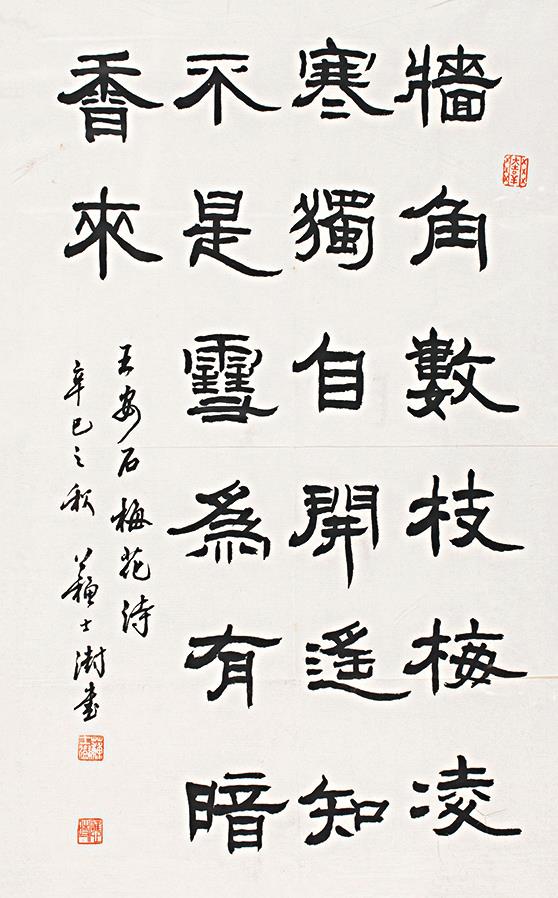 牆角數枝梅凌
寒獨自開遙知
不是雪為有暗
香來
王安石梅花詩
辛巳之秋 蘇士澍書
大吉羊